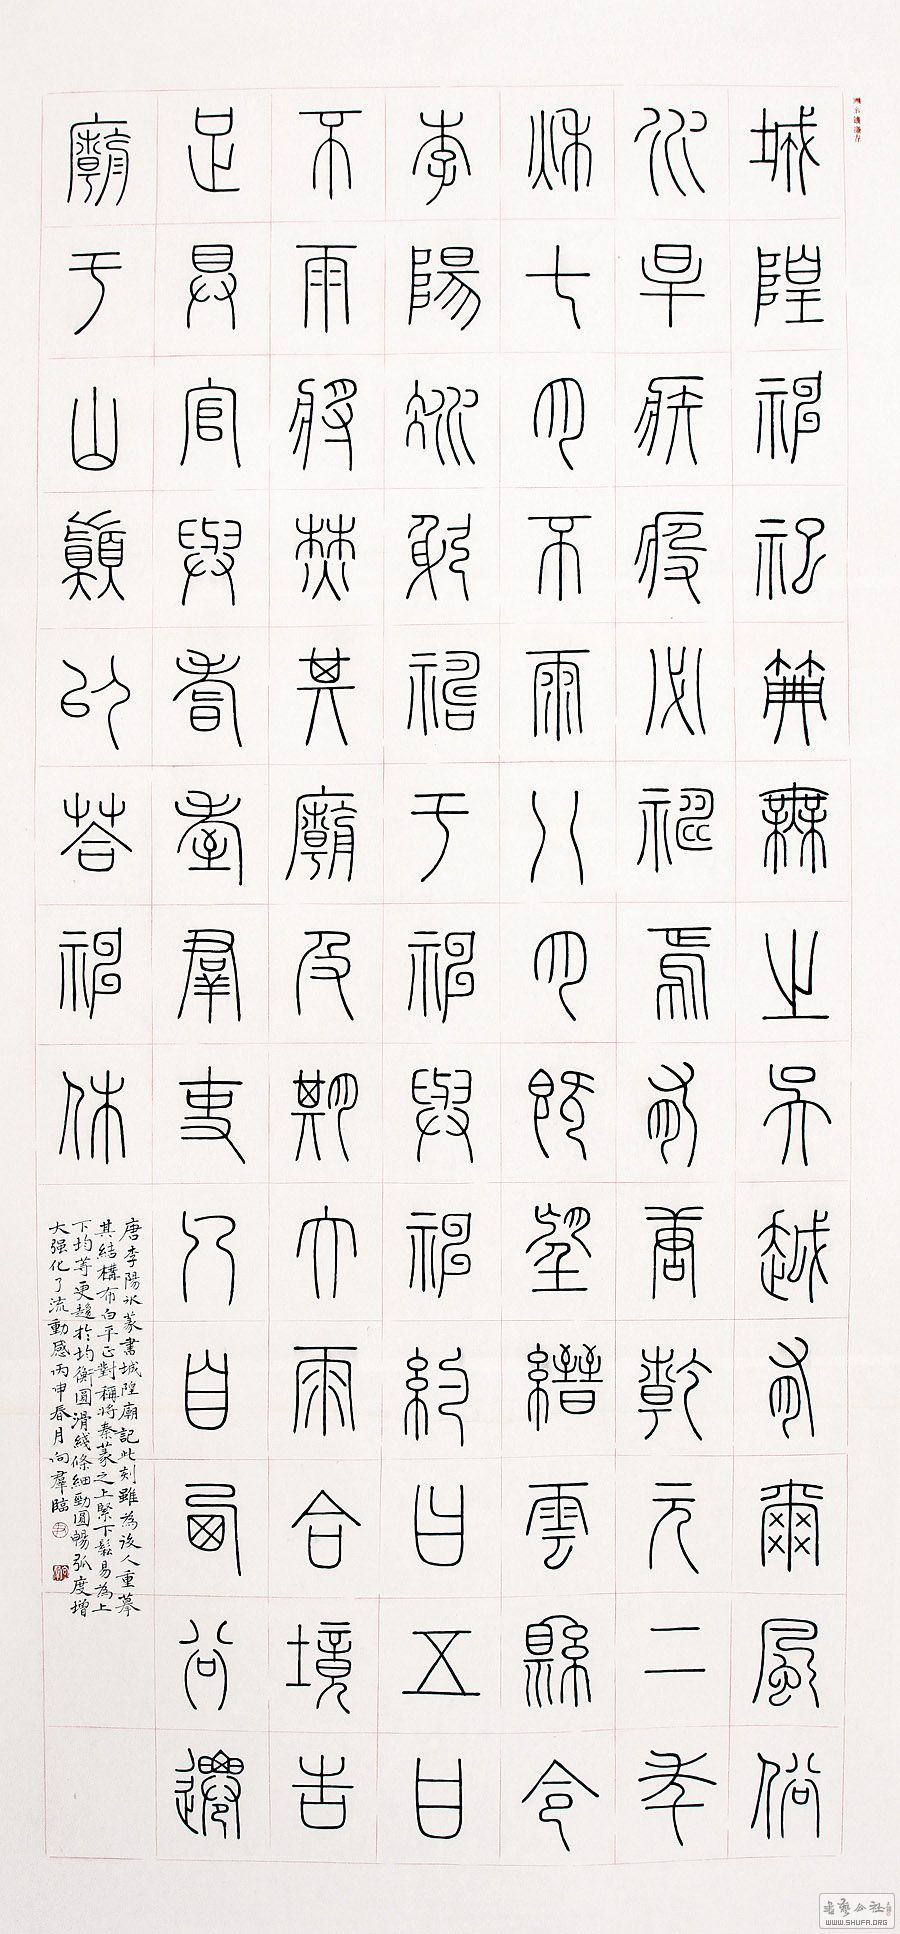 城隍神祀典無之吳越有爾風俗
水旱疾疫必禱焉有唐乾元二年
秋七月不雨八月既望縉雲縣令
李陽冰躬于神與神約曰五日
不雨將焚其廟及期大雨合境告
足具官與耆耋羣吏乃自西谷遷
廟于山巔以答神休
唐李陽冰篆書城隍廟記此刻雖為後人重摹
其結構布白平正對稱將秦篆之上緊下鬆易為上
下均等更趨於均衡圓滑綫條細勁圓暢弧度增
大强化了流動感丙申春月向羣臨
書藝公社
WWW.SHUFA.ORG